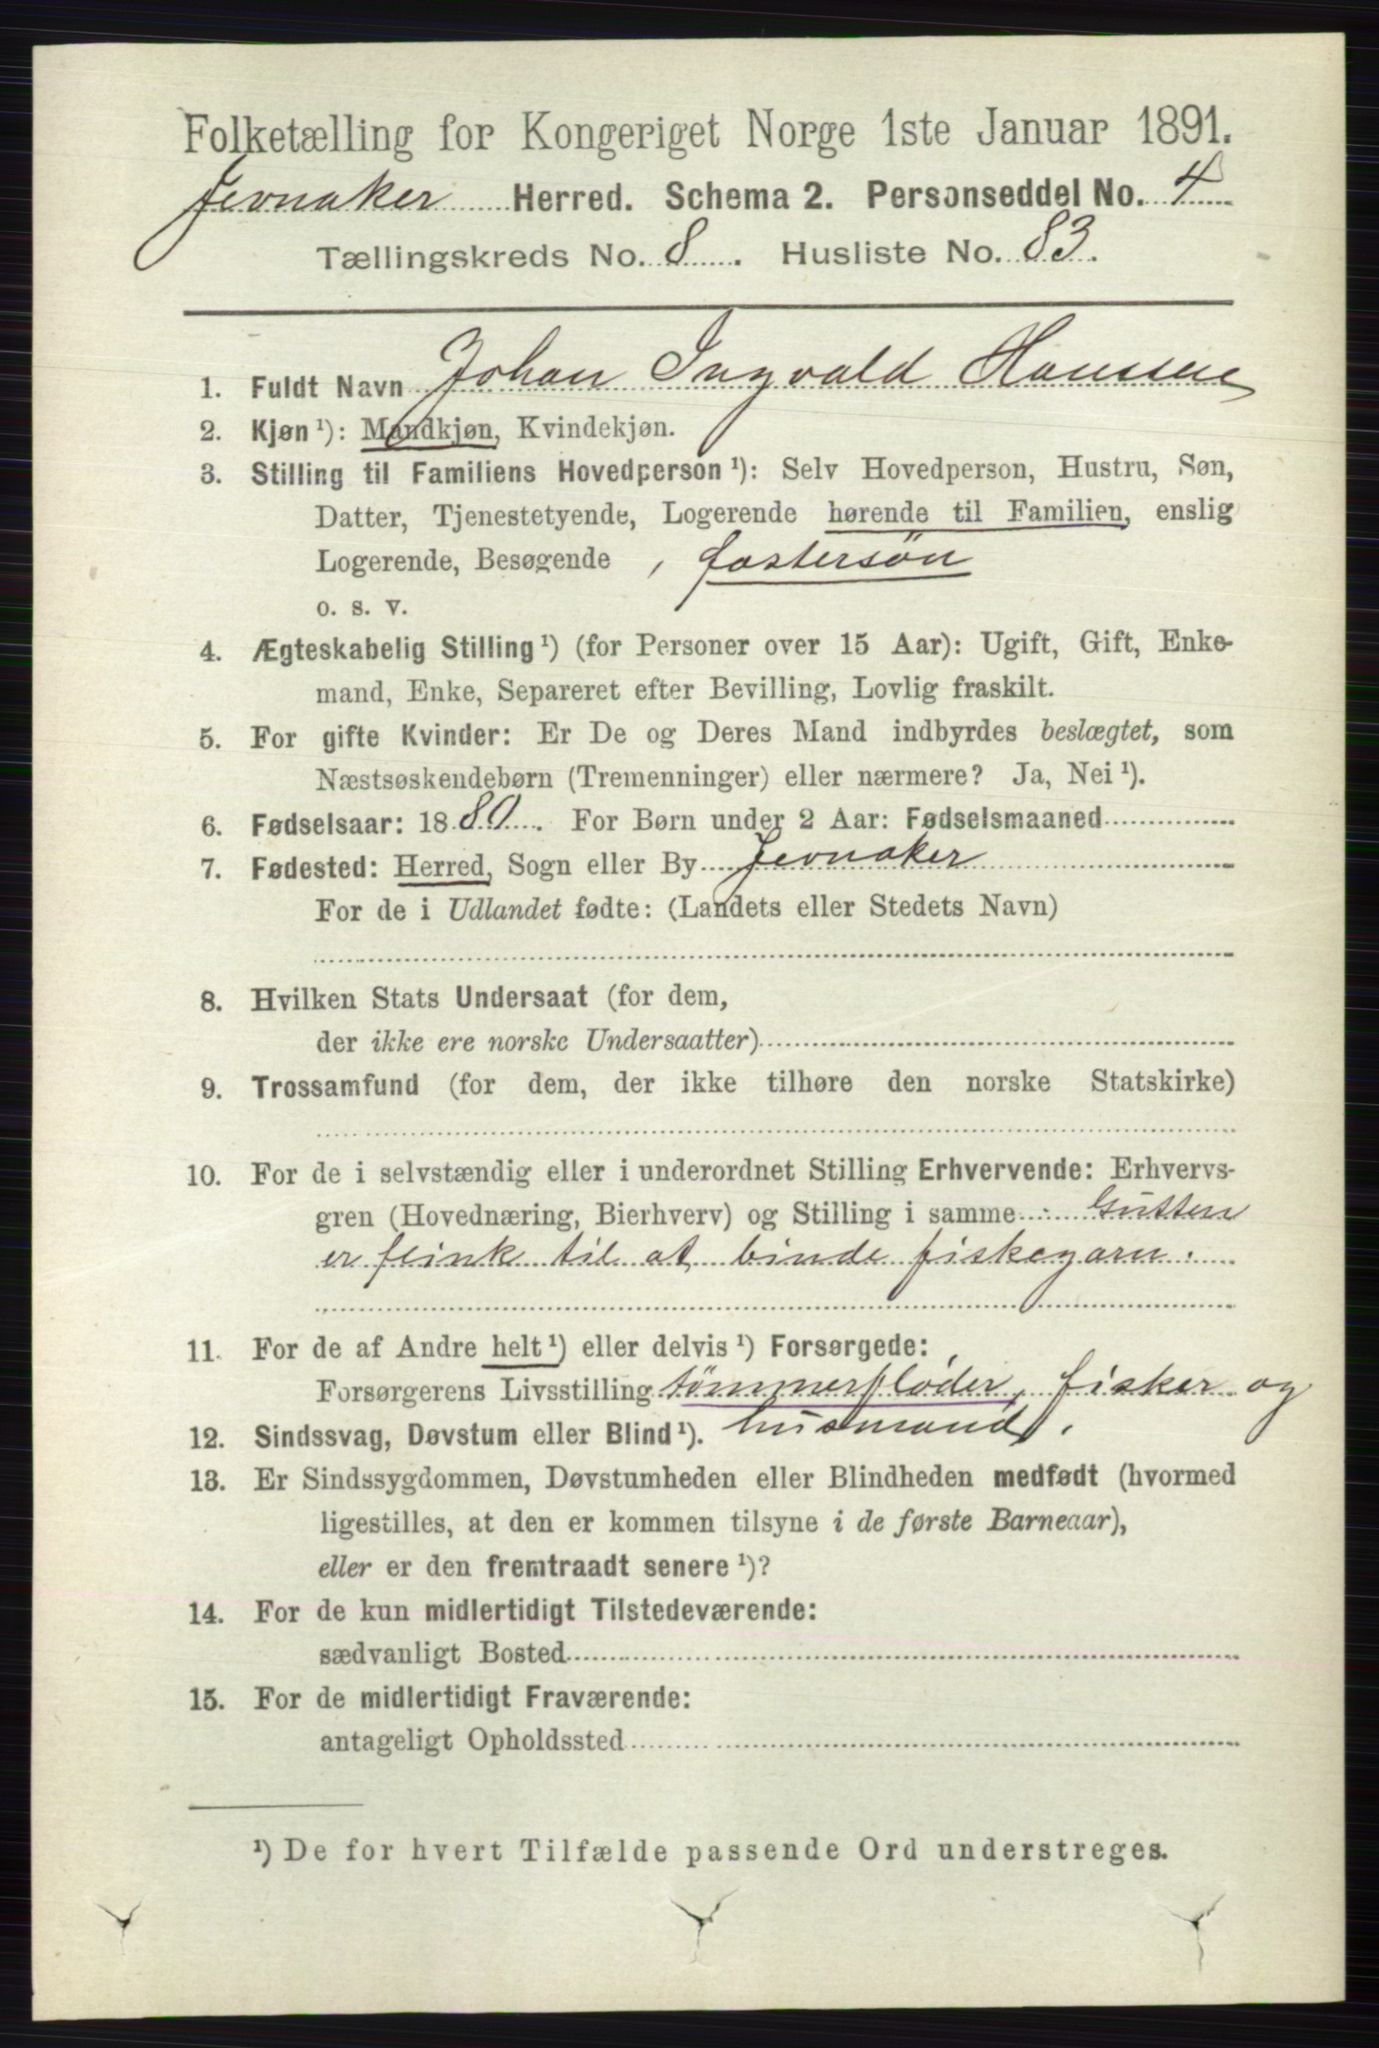 Folketælling for Kongeriget Norge 1ste Januar 1891.
Jevnaker Herred. Schema 2. Personseddel No. 4
Tællingskreds No. 8. Husliste No. 83.
1. Fuldt Navn Johan Ingvald Hanssen
2. Kjøn ¹): Mandkjøn, Kvindekjøn.
3. Stilling til Familiens Hovedperson ¹): Selv Hovedperson, Hustru, Søn,
Datter, Tjenestetyende, Logerende hørende til Familien, enslig
Logerende, Besøgende , fostersøn
o. s. v.
4. Ægteskabelig Stilling ¹) (for Personer over 15 Aar): Ugift, Gift, Enke-
mand, Enke, Separeret efter Bevilling, Lovlig fraskilt.
5. For gifte Kvinder: Er De og Deres Mand indbyrdes beslægtet, som
Næstsøskendebørn (Tremenninger) eller nærmere? Ja, Nei ¹).
6. Fødselsaar: 1880. For Børn under 2 Aar: Fødselsmaaned
7. Fødested: Herred, Sogn eller By Jevnaker
For de i Udlandet fødte: (Landets eller Stedets Navn)
8. Hvilken Stats Undersaat (for dem,
der ikke ere norske Undersaatter)
9. Trossamfund (for dem, der ikke tilhøre den norske Statskirke)
10. For de i selvstændig eller i underordnet Stilling Erhvervende: Erhvervs-
gren (Hovednæring, Bierhverv) og Stilling i samme : Gutten
er flink til at binde fiskegarn.
11. For de af Andre helt ¹) eller delvis ¹) Forsørgede:
Forsørgerens Livsstilling tømmerfløder, fisker og
12. Sindssvag, Døvstum eller Blind ¹). husmand.
13. Er Sindssygdommen, Døvstumheden eller Blindheden medfødt (hvormed
ligestilles, at den er kommen tilsyne i de første Barneaar),
eller er den fremtraadt senere ¹)?
14. For de kun midlertidigt Tilstedeværende:
sædvanligt Bosted
15. For de midlertidigt Fraværende:
antageligt Opholdssted
¹) De for hvert Tilfælde passende Ord understreges.